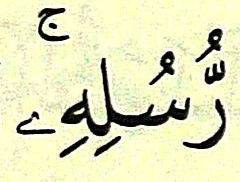 رُّسُلِهِۦۚ